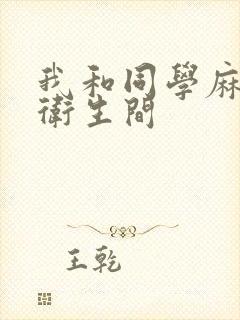 我和同學麻
衛生間
王乾